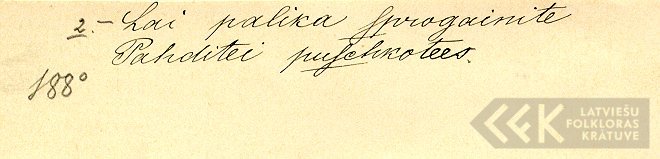 2. - Lai palika sprogainite
Pahditei puschkotees.
188°
LATVIEŠU
FOLKLORAS
KRĀTUVE